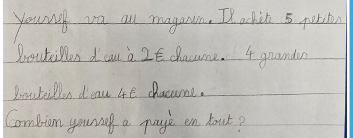 youssef va au magasin. Il achète 5 petites
bouteilles d'eau à 2€ chacune. 4 grandes
bouteilles d'eau 4€ chacune.
Combien youssef a payè en tout ?